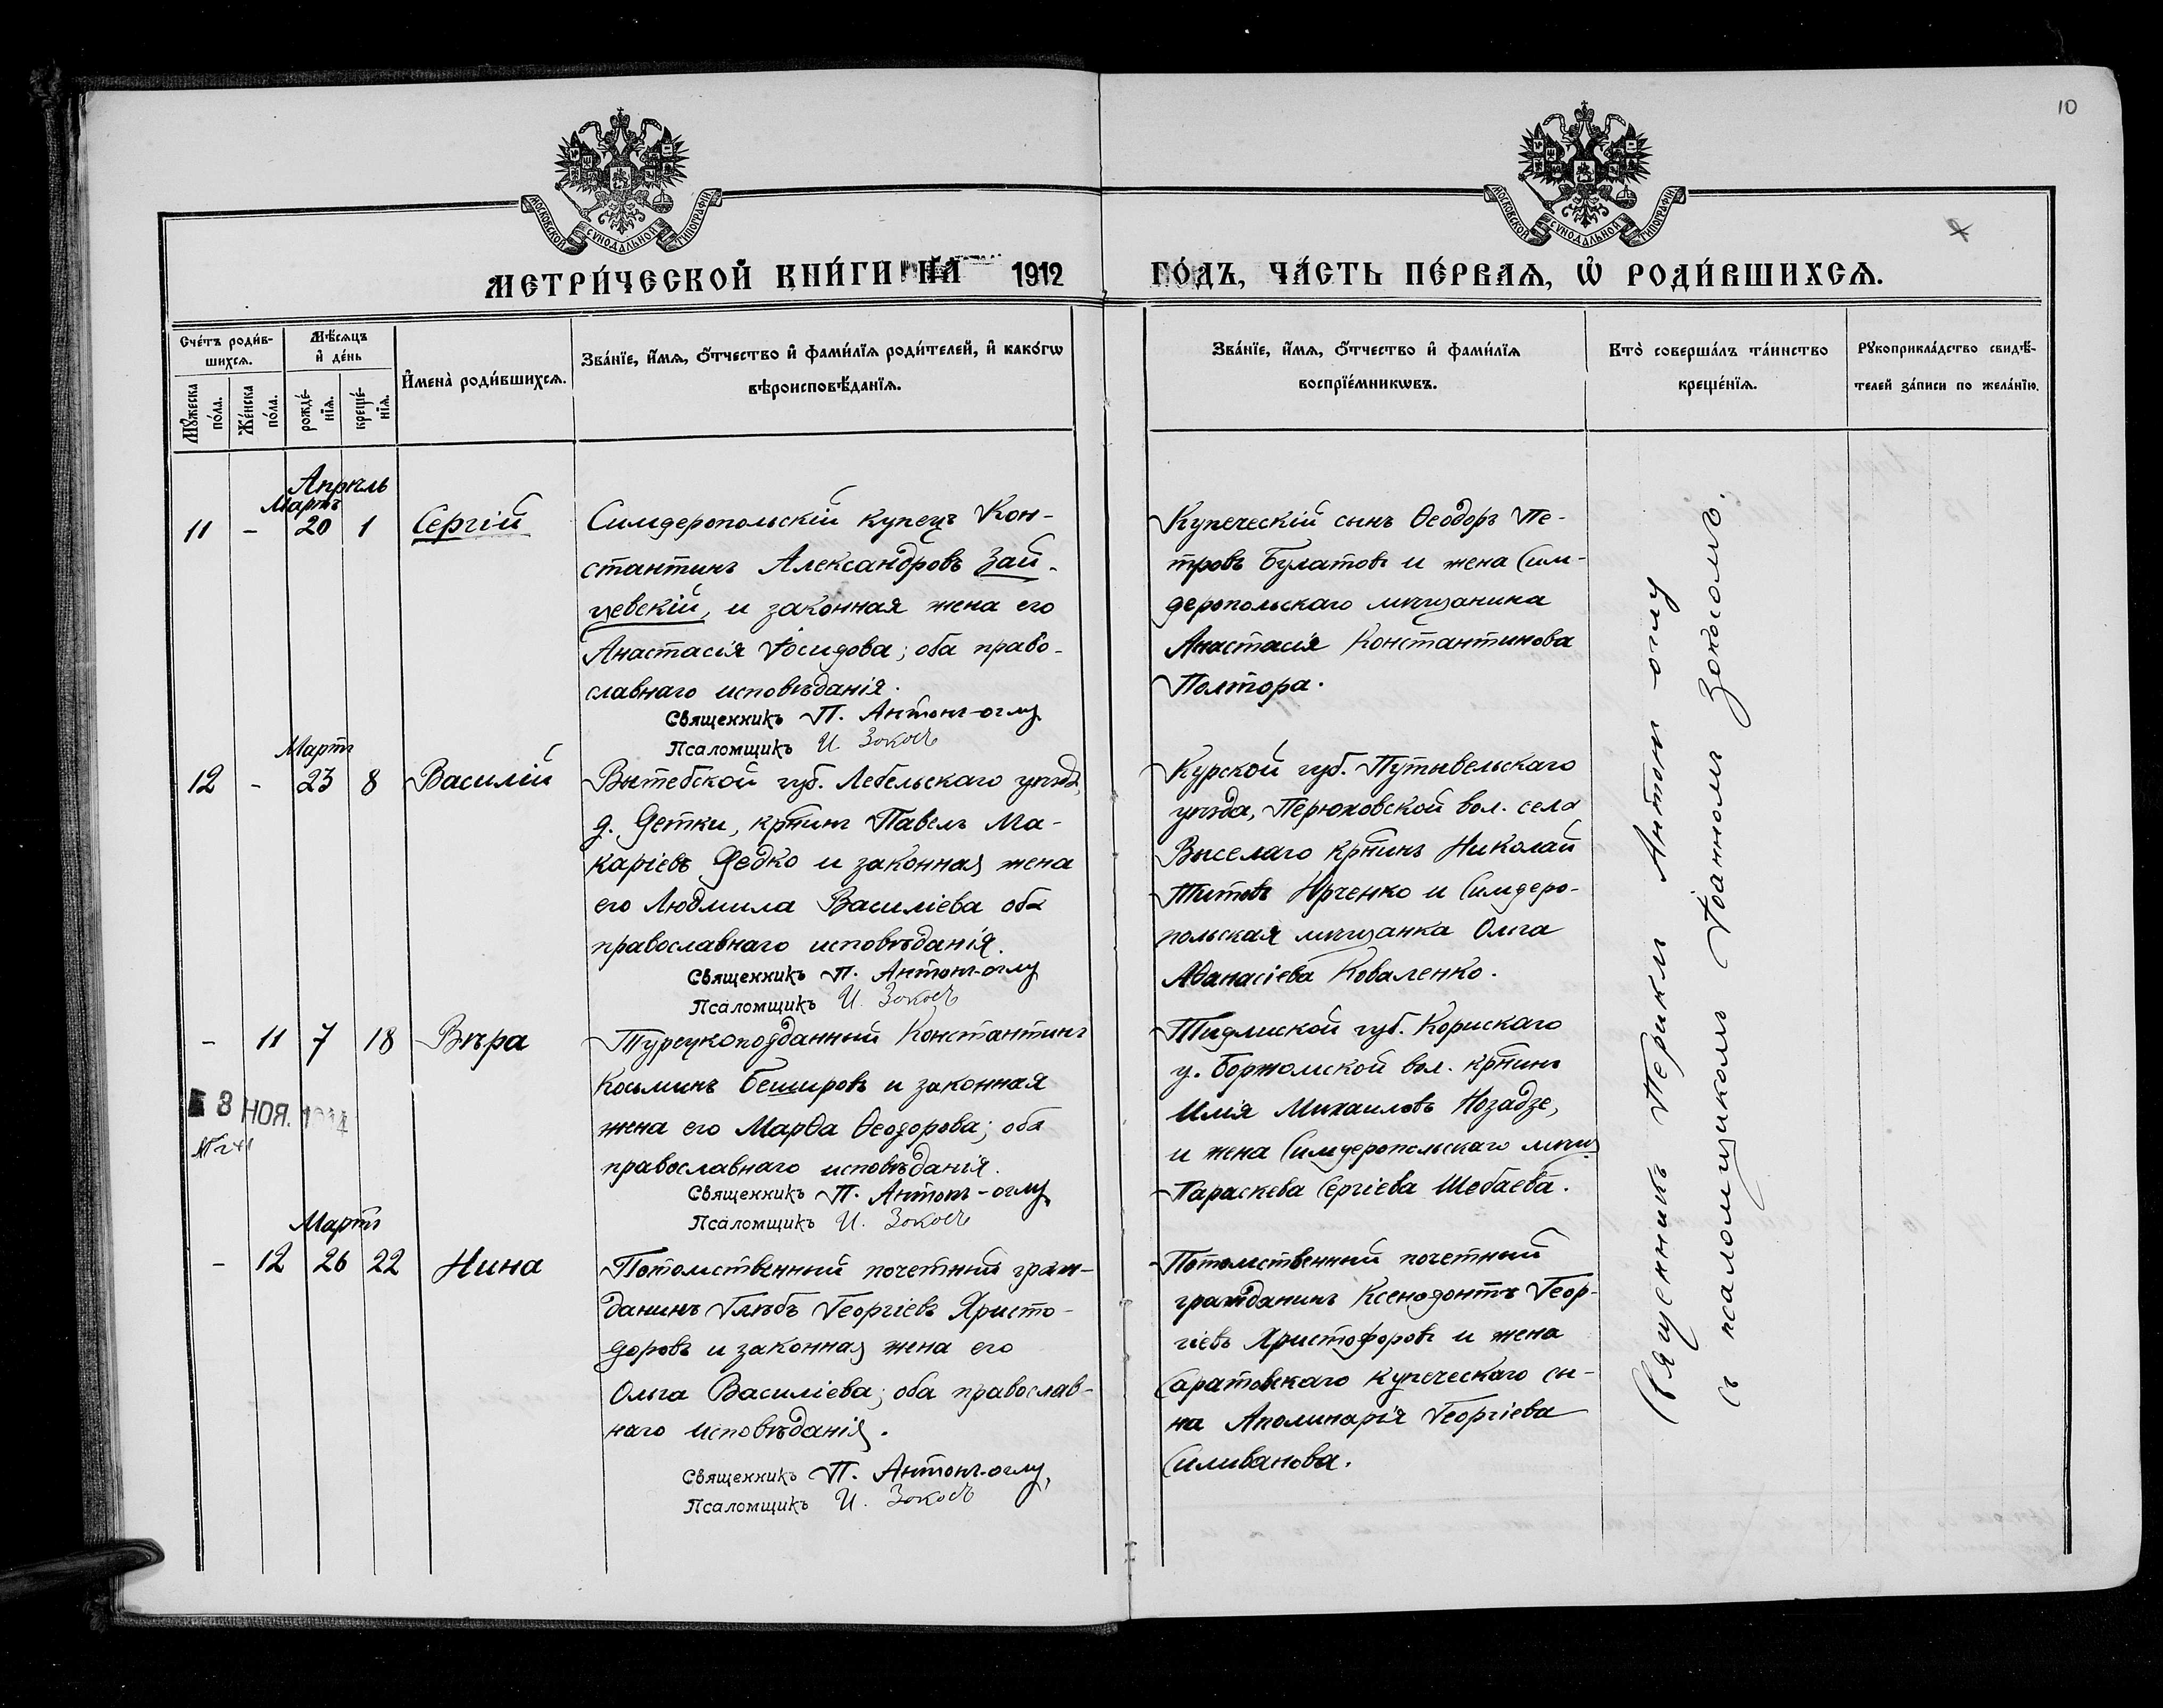 10
МОСКОВСКОЙ СѴНОДАЛЬНОЙ ТИПОГРАФІИ
МОСКОВСКОЙ СѴНОДАЛЬНОЙ ТИПОГРАФІИ
МЕТРИ́ЧЕСКОЙ КНИ́ГИ НА 1912
ГО́ДЪ, ЧА́СТЬ ПЕ́РВАѦ, Ѡ҆ РОДИ́ВШИХСѦ.
Сче́тъ роди́в-
шихсѧ.
Мꙋ́жеска
по́ла.
Же́нска
по́ла.
Мѣ́сѧцъ
и҆ де́нь
рожде́-
нїѧ.
креще́-
нїѧ.
И҆мена̀ роди́вшихсѧ.
Зва́нїе, и҆́мѧ, ѻ҆́тчество и҆ фами́лїѧ роди́телей, и҆ како́гѡ
вѣроисповѣ́данїѧ.
Зва́нїе, и҆́мѧ, ѻ҆́тчество и҆ фами́лїѧ
воспрїе́мникѡвъ.
Кто̀ соверша́лъ та́инство
креще́нїѧ.
Рꙋкоприкла́дство свидѣ́-
телей за́писи по жела́нїю.
Апрѣль
Мартъ
11 - 20 1 Сергій
Симферопольскій купецъ Кон-
стантинъ Александровъ Зай-
цевскій, и законная жена его
Анастасія Іосифова; оба право-
славнаго исповѣданія.
Священникъ П. Антонъ-оглу
Псаломщикъ И. Зокосъ
Купеческій сынъ Ѳеодоръ Пе-
тровъ Булатовъ и жена Сим-
феропольскаго мѣщанина
Анастасія Константинова
Полтора.
Мартъ
12 - 23 8 Василій
Витебской губ. Лебельскаго уѣзда,
д. Детки, крнинъ Павелъ Ма-
каріевъ Федко и законная жена
его Людмила Василіева оба
православнаго исповѣданія.
Священникъ П. Антонъ-оглу
Псаломщикъ И. Зокосъ
Курской губ. Путивельскаго
уѣзда, Перюховской вол. села
Выселаго крнинъ Николай
Титовъ Юрченко и Симферо-
польская мѣщанка Ольга
Аѳанасіева Коваленко.
- 11 7 18 Вѣра
8 НОЯ. 1914
№ 241
Турецкоподданный Константинъ
Косминъ Бешировъ и законная
жена его Марѳа Ѳеодорова; оба
православнаго исповѣданія.
Священникъ П. Антонъ-оглу
Псаломщикъ И. Зокосъ
Тифлиской губ. Корискаго
у. Боржомской вол. крнинъ
Илія Михаиловъ Нозадзе,
и жена Симферопольскаго мѣщ
Параскева Сергіева Шебаева.
Мартъ
- 12 26 22 Нина
Потомственный почетный граж-
данинъ Глѣбъ Георгіевъ Христо-
форовъ и законная жена его
Ольга Василіева; оба православ-
наго исповѣданія.
Священникъ П. Антонъ-оглу,
Псаломщикъ И. Зокосъ
Потомственный почетный
гражданинъ Ксенофонтъ Геор-
гіевъ Христофоровъ и жена
Саратовскаго купеческаго сы-
на Аполинарія Георгіева
Силиванова.
Священникъ Периклъ Антонъ оглу
съ псаломщикомъ Іоанномъ Зокосомъ.